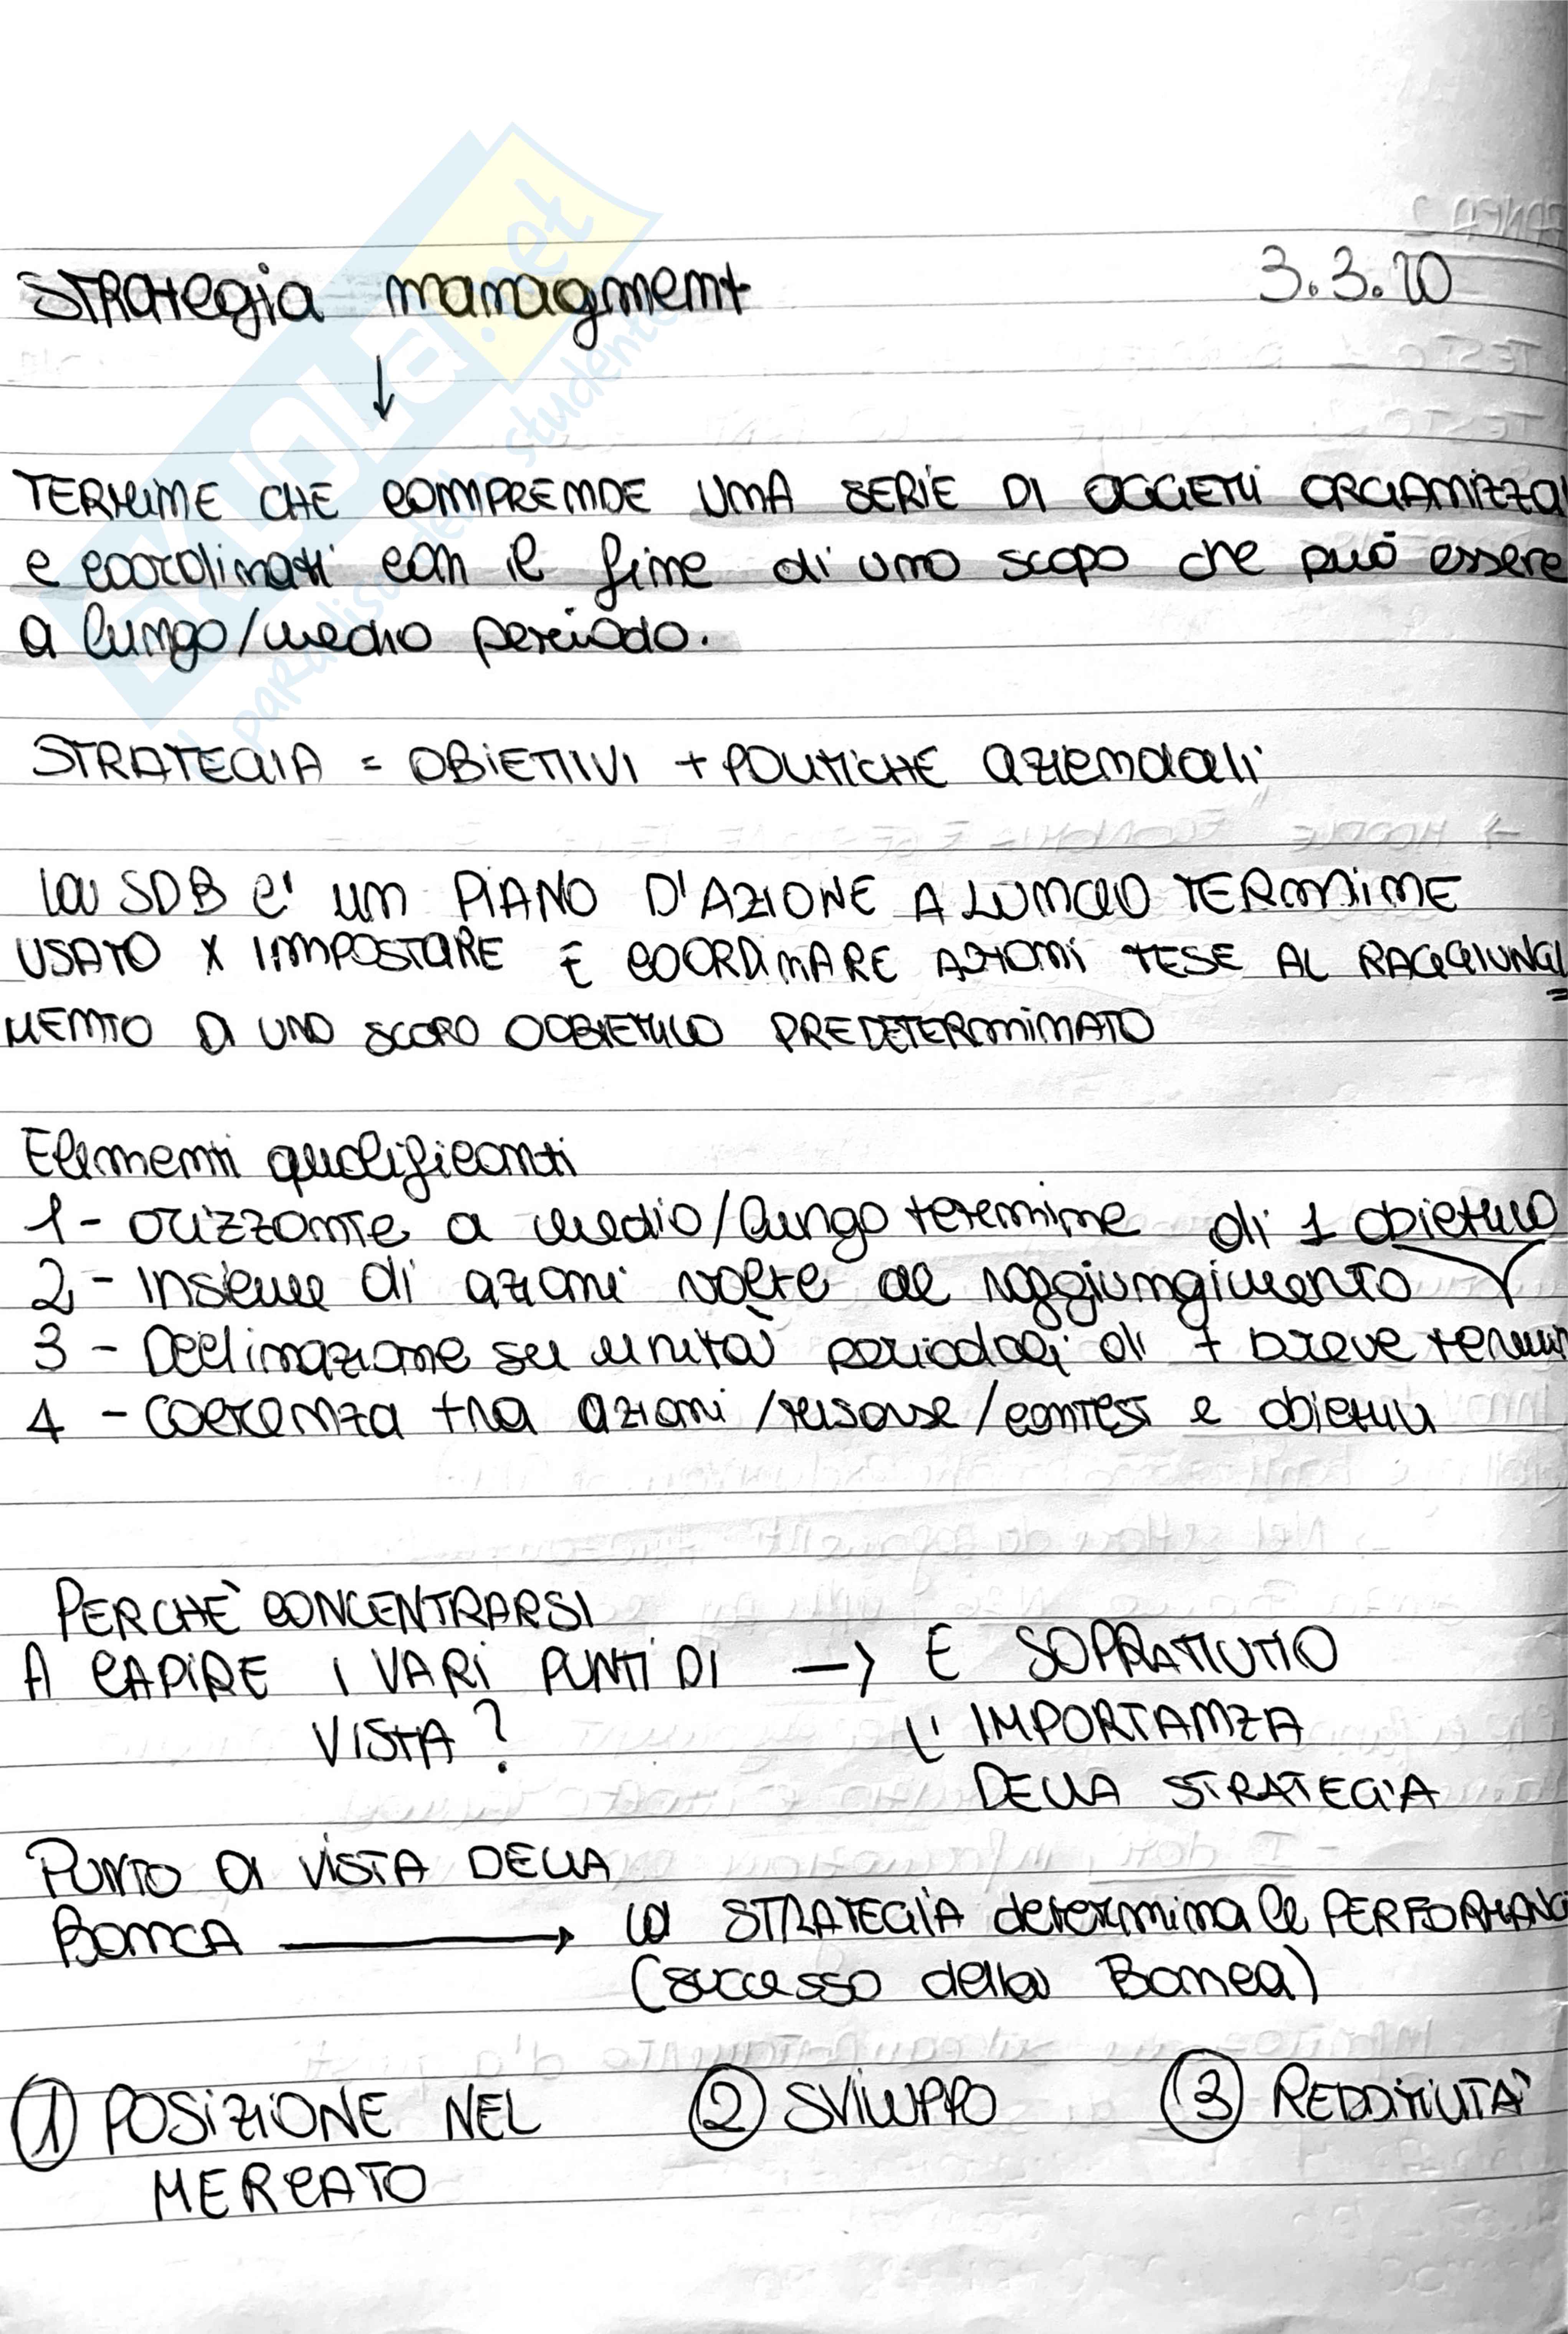 STRATegia managment
3.3.20
↓
TERMINE CHE COMPRENDE UNA SERIE DI OGGETTI ORGANIZZA
e coordinati con il fine di uno scopo che può essere
a lungo/medio periodo.
STRATEGIA = OBIETTIVI + POLITICHE aziendali
la SDB e' un PIANO D'AZIONE A LUNGO TERMINE
USATO X IMPOSTARE E COORDINARE AZIONI TESE AL RAGGIUNGI
MENTO DI UNO SCOPO O OBIETTIVO PREDETERMINATO
Elementi qualificanti
1- orizzonte a medio/lungo termine di 1 obiettivo
2 - Insieme di azioni volte al raggiungimento
3 - Declinazione su unità periodali di + breve termin
4 - coerenza tra azioni /risorse/contest e obiettivi
PERCHÈ CONCENTRARSI
A CAPIRE I VARI PUNTI DI —> E SOPRATTUTTO
VISTA? L' IMPORTANZA
DELLA STRATEGIA
PUNTO DI VISTA DELLA
BANCA ⟶ la STRATEGIA determina le PERFORMANC
(successo della Banca)
① POSIZIONE NEL ② SVILUPPO ③ REDDITIVITA'
MERCATO
SKUOLA.net
il paradiso dello studente